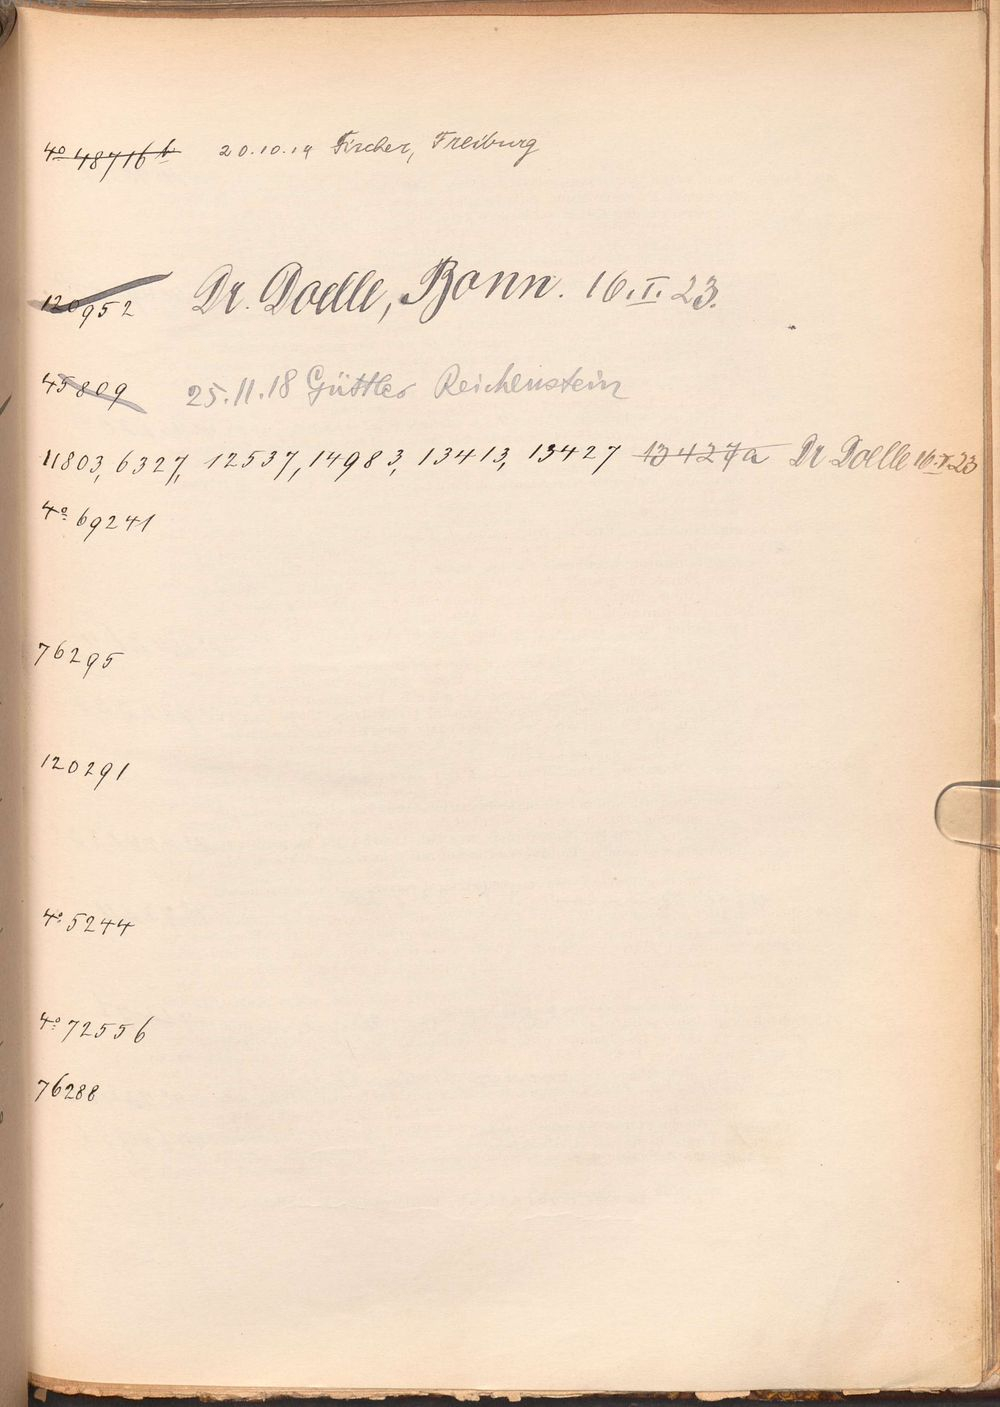 4º 48716 b 20.10.19 Fischer, Freiburg
120952 Dr. Doelle, Bonn. 16.I.23.
45809 25.11.18 Güttler Reichenstein
11803, 6327, 12537, 14983, 13413, 13427 13427a Dr Doelle 16.I.23
4º 69241
76295
120291
4º 5244
4º 72556
76288